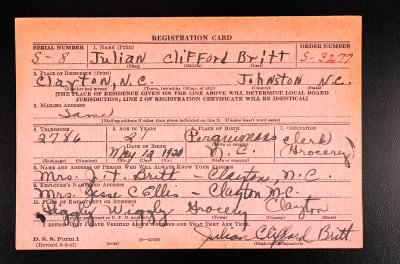 REGISTRATION CARD
SERIAL NUMBER 1. NAME (Print) ORDER NUMBER
S-8 Julian Clifford Britt S-3277
(First) (Middle) (Last)
2. PLACE OF RESIDENCE (Print)
Clayton, N.C. Johnston N.C.
(Number and street) (Town, township, village, or city) (County) (State)
[THE PLACE OF RESIDENCE GIVEN ON THE LINE ABOVE WILL DETERMINE LOCAL BOARD
JURISDICTION; LINE 2 OF REGISTRATION CERTIFICATE WILL BE IDENTICAL]
3. MAILING ADDRESS
Same
[Mailing address if other than place indicated on line 2. If same insert word same]
4. TELEPHONE 5. AGE IN YEARS 6. PLACE OF BIRTH 7. OCCUPATION
2786 21 Perquimans Clerk
DATE OF BIRTH (Grocery)
May 10 1920 N.C.
8. NAME AND ADDRESS OF PERSON WHO WILL ALWAYS KNOW YOUR ADDRESS
Mrs. J. T. Britt - Clayton, N.C.
9. EMPLOYER'S NAME AND ADDRESS
Mrs. Jesse C Ellis - Clayton N.C.
10. PLACE OF EMPLOYMENT OR BUSINESS
Piggly Wiggly Grocery Clayton
I AFFIRM THAT I HAVE VERIFIED ABOVE ANSWERS AND THAT THEY ARE TRUE.
Julian Clifford Britt
D. S. S. Form 1
(Registrant's signature)